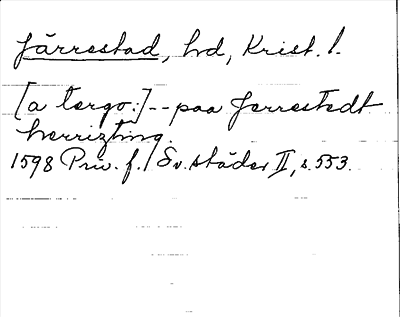 Järrestad, hd, Krist. l.
[a tergo:] -- paa Jerrestedt
herrizting.
1598 Priv. f. / Sv. städer II, s. 553.